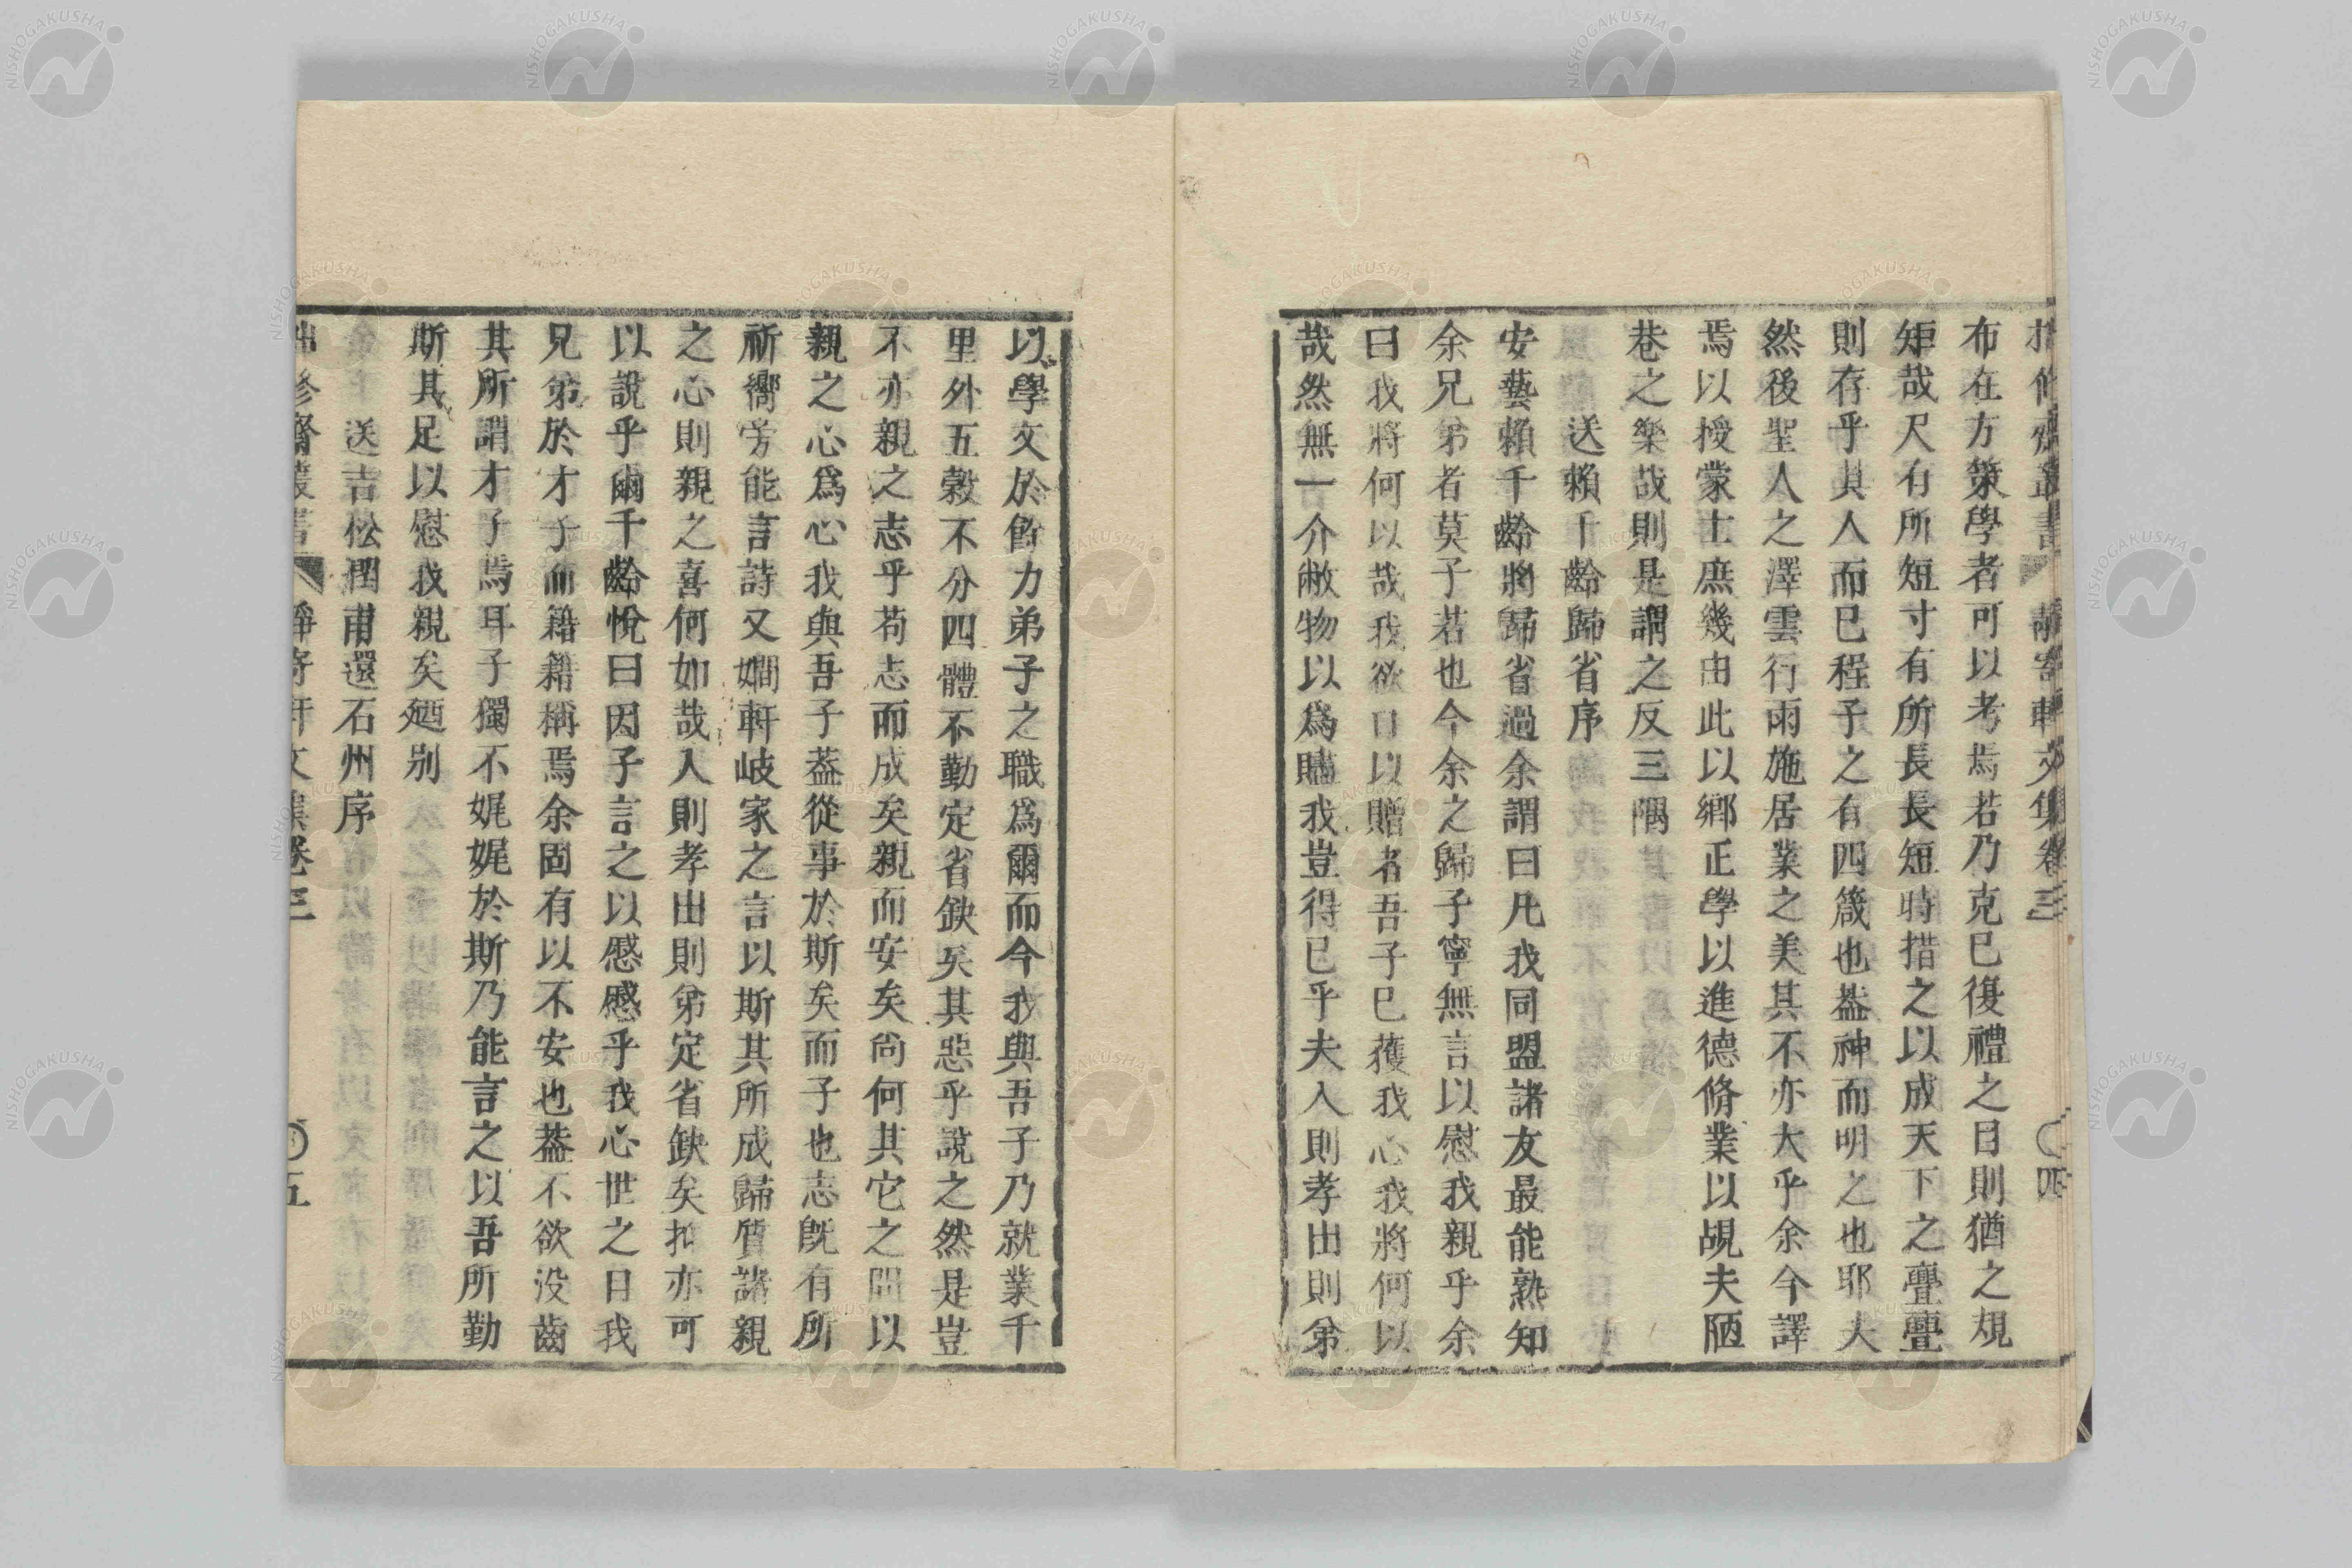 布在方策學者可以考焉若乃克已復禮之目則猶之規
矩哉尺有所短寸有所長長短時措之以成天下之亹亹
則存乎其人而已程子之有四箴也葢神而明之也耶大
然後聖人之澤雲行雨施居業之美其不亦大乎余今譯
焉以授蒙士庶幾由此以鄉正學以進德脩業以覘夫陋
巷之樂哉則是謂之反三隅
送賴千齡歸省序
安藝賴千齡將歸省過余謂曰凡我同盟諸友最能熟知
余兄弟者莫子若也今余之歸子寧無言以慰我親乎余
曰我將何以哉我欲口以贈者吾子已獲我心我將何以
哉然無一介敝物以爲贐我豈得已乎夫入則孝出則弟
以學文於餘力弟子之職爲爾而今我與吾子乃就業千
里外五穀不分四體不勤定省缺矣其惡乎說之然是豈
不亦親之志乎苟志而成矣親而安矣尙何其它之問以
親之心爲心我與吾子葢從事於斯矣而子也志旣有所
祈嚮旁能言詩又嫺軒岐家之言以斯其所成歸質諸親
之心則親之喜何如哉入則孝出則弟定省缺矣抑亦可
以說乎爾千齡悅曰因子言之以慼慼乎我心世之日我
兄弟於才子而籍籍稱焉余固有以不安也葢不欲没齒
其所謂才子焉耳子獨不娓娓於斯乃能言之以吾所勤
斯其足以慰我親矣廼别
送吉松潤甫還石州序
NISHOGAKUSHA